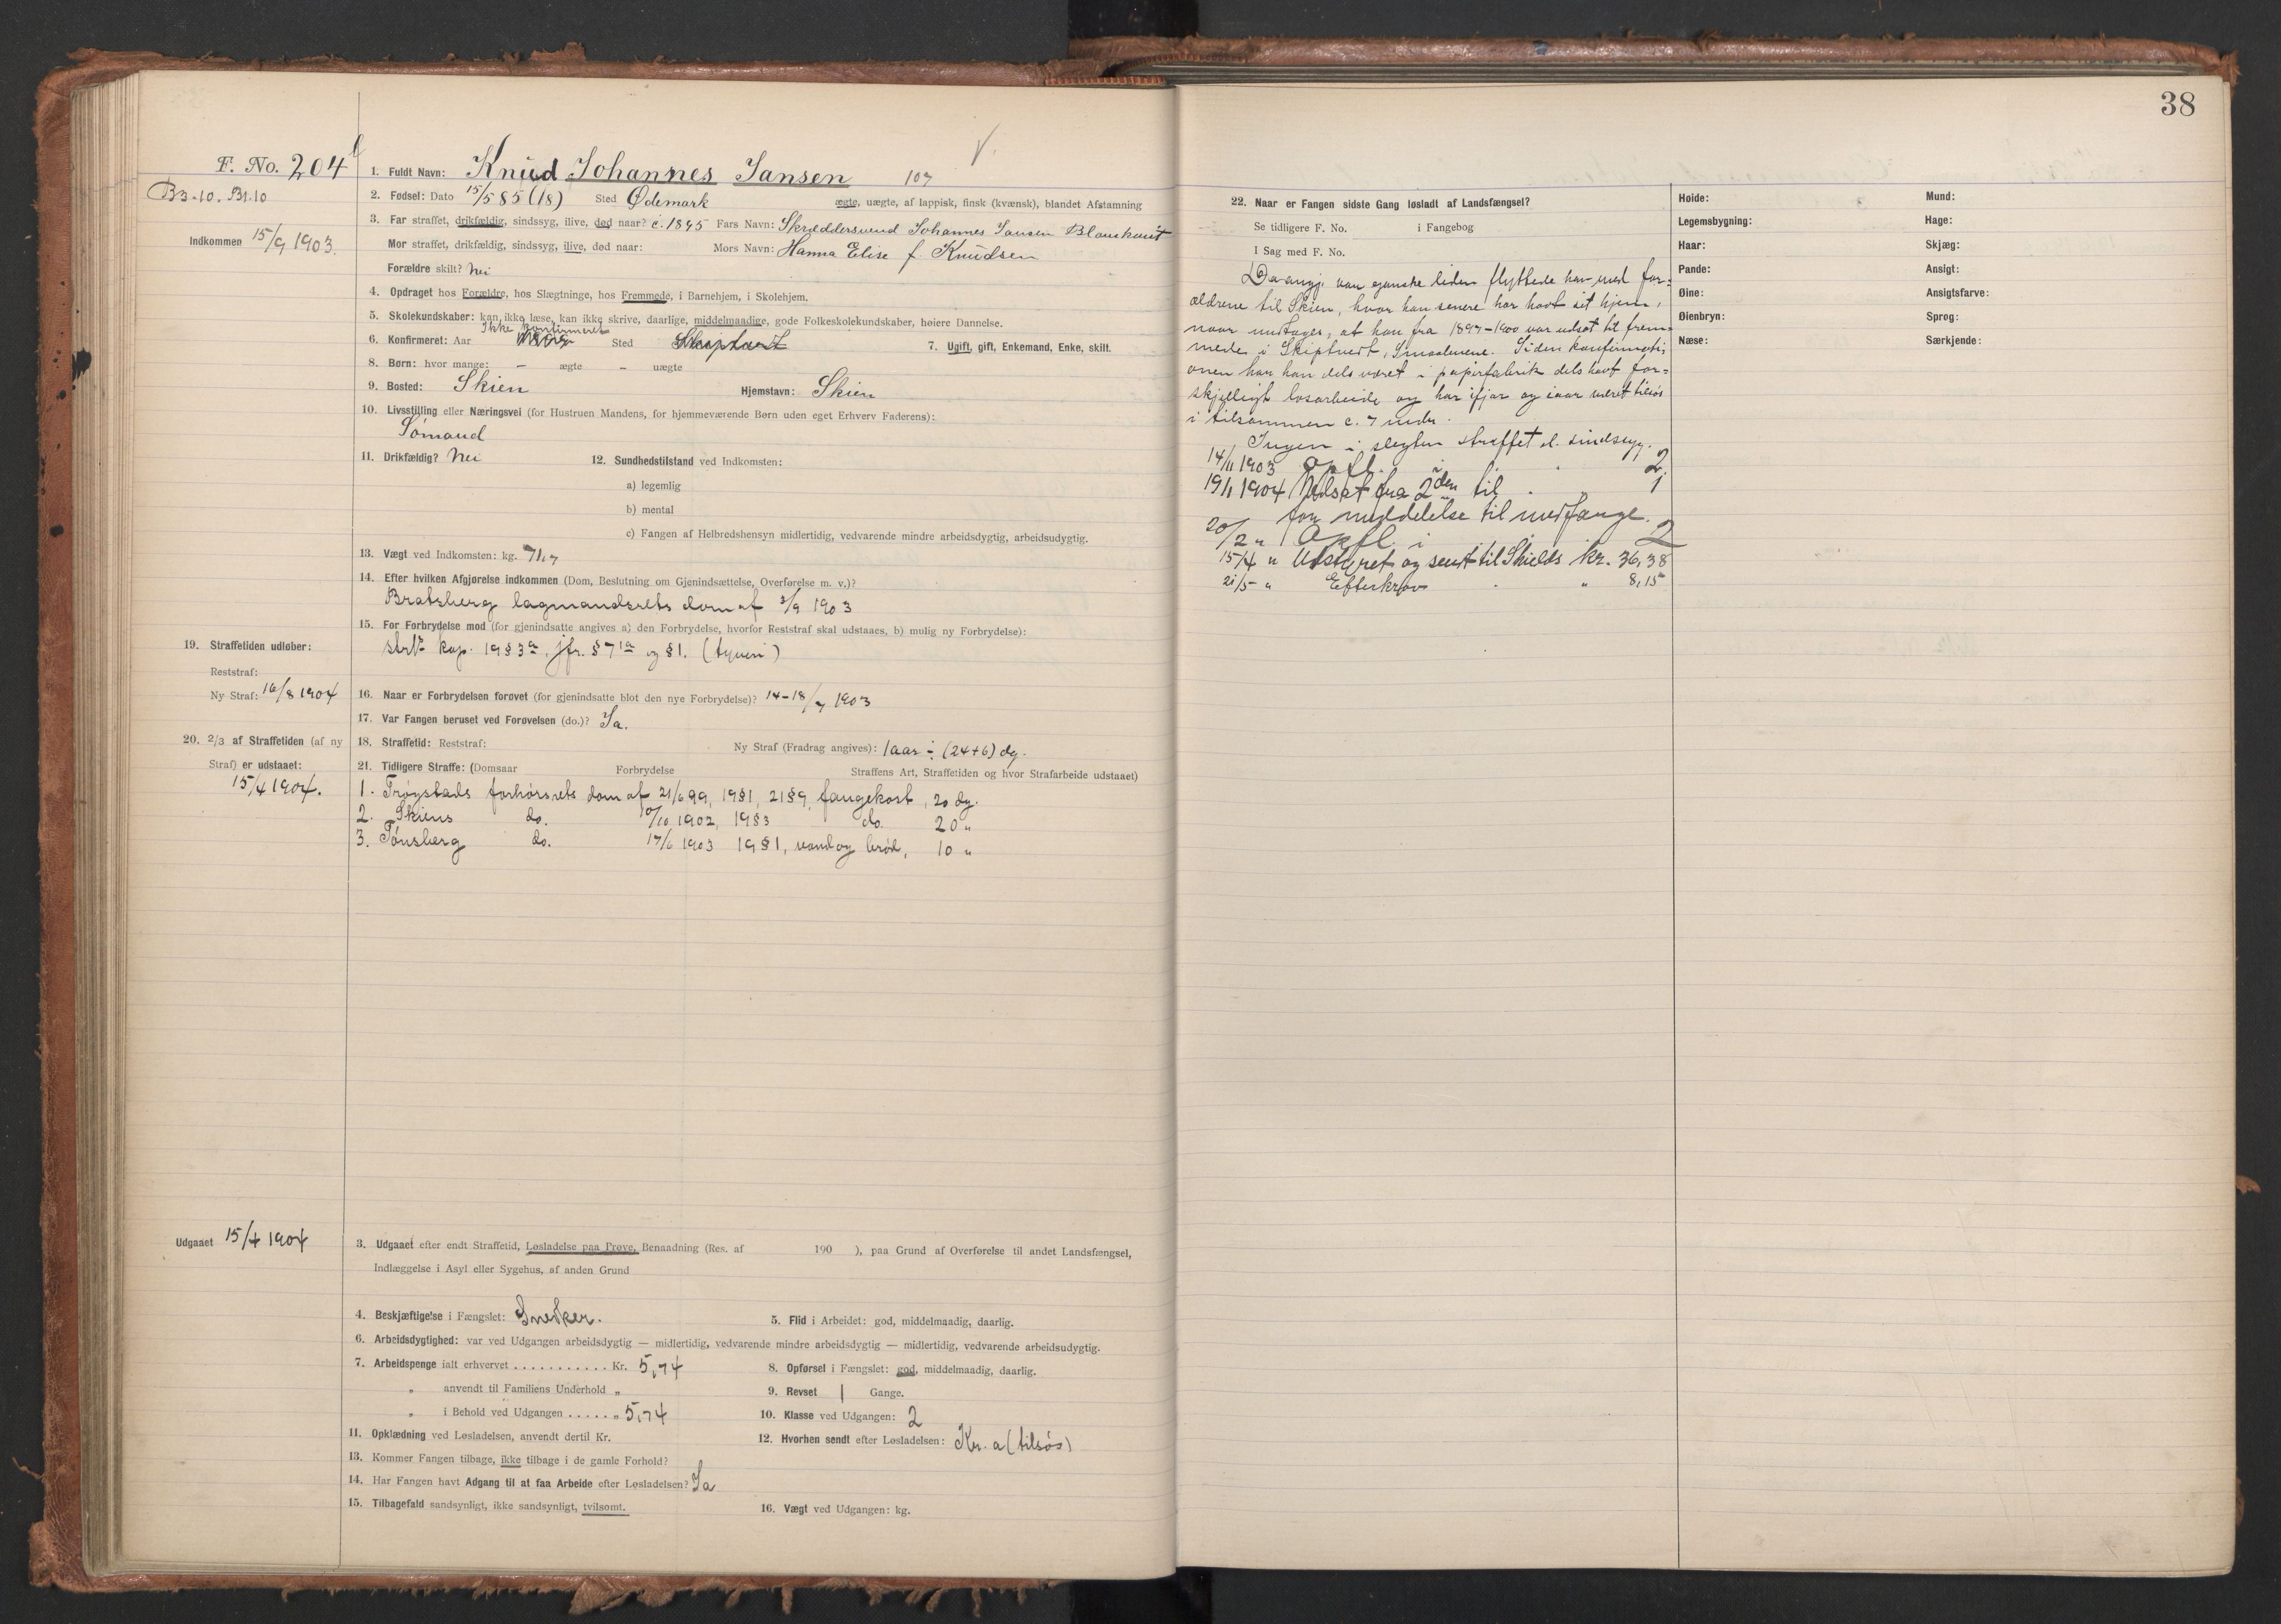 38
F. No. 204
B3-10. B1.10
Indkommen 15/9 1903.
1. Fuldt Navn: Knud Johannes Jansen 107
2. Fødsel: Dato 15/5 85 (18) Sted Ødemark ægte, uægte, af lappisk, finsk (kvænsk), blandet Afstamning
3. Far straffet, drikfældig, sindssyg, ilive, død naar? c. 1895 Fars Navn: Skræddersvend Johannes Jansen
Mor straffet, drikfældig, sindssyg, ilive, død naar: Mors Navn: Hanna Elise f. Knudsen
Forældre skilt? Nei
4. Opdraget hos Forældre, hos Slægtninge, hos Fremmede, i Barnehjem, i Skolehjem.
5. Skolekundskaber: kan ikke læse, kan ikke skrive, daarlige, middelmaadige, gode Folkeskolekundskaber, høiere Dannelse.
Ikke konfirmeret
6. Konfirmeret: Aar Sted Skiptvedt 7. Ugift, gift, Enkemand, Enke, skilt.
8. Børn: hvor mange: – ægte – uægte
9. Bosted: Skien Hjemstavn: Skien
10. Livsstilling eller Næringsvei (for Hustruen Mandens, for hjemmeværende Børn uden eget Erhverv Faderens):
Sømand
11. Drikfældig? Nei 12. Sundhedstilstand ved Indkomsten:
a) legemlig
b) mental
c) Fangen af Helbredshensyn midlertidig, vedvarende mindre arbeidsdygtig, arbeidsudygtig.
13. Vægt ved Indkomsten: kg. 71,7
14. Efter hvilken Afgjørelse indkommen (Dom, Beslutning om Gjenindsættelse, Overførelse m. v.)?
Bratsberg lagmandsrets dom af 3/9 1903
15. For Forbrydelse mod (for gjenindsatte angives a) den Forbrydelse, hvorfor Reststraf skal udstaaes, b) mulig ny Forbrydelse):
strl. kap. 19 § 3 a, jfr. § 7 1a og § 1. (tyveri)
19. Straffetiden udløber:
Reststraf:
Ny Straf: 16/8 1904
16. Naar er Forbrydelsen forøvet (for gjenindsatte blot den nye Forbrydelse)? 14-18/7 1903
17. Var Fangen beruset ved Forøvelsen (do.)? Ja.
20. 2/3 af Straffetiden (af ny
Straf) er udstaaet:
15/4 1904.
18. Straffetid: Reststraf: Ny Straf (Fradrag angives): 1 aar ÷ (24+6) dg.
21. Tidligere Straffe: (Domsaar Forbrydelse Straffens Art, Straffetiden og hvor Strafarbeide udstaaet)
1. Trøgstads forhørsrets dom af 21/6 99, 19 § 1, 21 § 9, fangekost, 20 dg.
2. Skiens do. 10/10 1902, 19 § 3 do. 20 "
3. Tønsberg do. 17/6 1903 19 § 1, vand og brød, 10 "
Udgaaet 15/4 1904
3. Udgaaet efter endt Straffetid, Løsladelse paa Prøve, Benaadning (Res. af 190 ), paa Grund af Overførelse til andet Landsfængsel,
Indlæggelse i Asyl eller Sygehus, af anden Grund
4. Beskjæftigelse i Fængslet: Snedker. 5. Flid i Arbeidet: god, middelmaadig, daarlig.
6. Arbeidsdygtighed: var ved Udgangen arbeidsdygtig — midlertidig, vedvarende mindre arbeidsdygtig — midlertidig, vedvarende arbeidsudygtig.
7. Arbeidspenge ialt erhvervet ........... Kr. 5,74 8. Opførsel i Fængslet: god, middelmaadig, daarlig.
" anvendt til Familiens Underhold " 9. Revset 1 Gange.
" i Behold ved Udgangen ...... " 5,74 10. Klasse ved Udgangen: 2
11. Opklædning ved Løsladelsen, anvendt dertil Kr. 12. Hvorhen sendt efter Løsladelsen: Kr. a (tilsøs)
13. Kommer Fangen tilbage, ikke tilbage i de gamle Forhold?
14. Har Fangen havt Adgang til at faa Arbeide efter Løsladelsen? Ja
15. Tilbagefald sandsynligt, ikke sandsynligt, tvilsomt. 16. Vægt ved Udgangen: kg.
22. Naar er Fangen sidste Gang løsladt af Landsfængsel?
Se tidligere F. No. i Fangebog
I Sag med F. No.
Da angj. var ganske liden flyttede han med for-
ældrene til Skien, hvor han senere har havt sit hjem,
naar undtages, at han fra 1897-1900 var udsat til frem-
mede i Skiptvedt, Smaalenene. Siden konfirmati-
onen har han dels været i papirfabrik dels havt for-
skjelligt løsarbeide og har ifjor og iaar været tilsøs
i tilsammen c. 7 mdr.
Ingen i slegten straffet el. sindssyg.
14/11 1903 Opfl. i " 2.
19/1 1904 Nedsat fra 2den til " 1
for meddelelse til medfange.
20/2 " Opfl. i 2
15/4 " Udstyret og sendt til Shields kr. 36,38
21/5 " Efterkrav " " 8,15
Høide:
Legemsbygning:
Haar:
Pande:
Øine:
Øienbryn:
Næse:
Mund:
Hage:
Skjæg:
Ansigt:
Ansigtsfarve:
Sprog:
Særkjende: